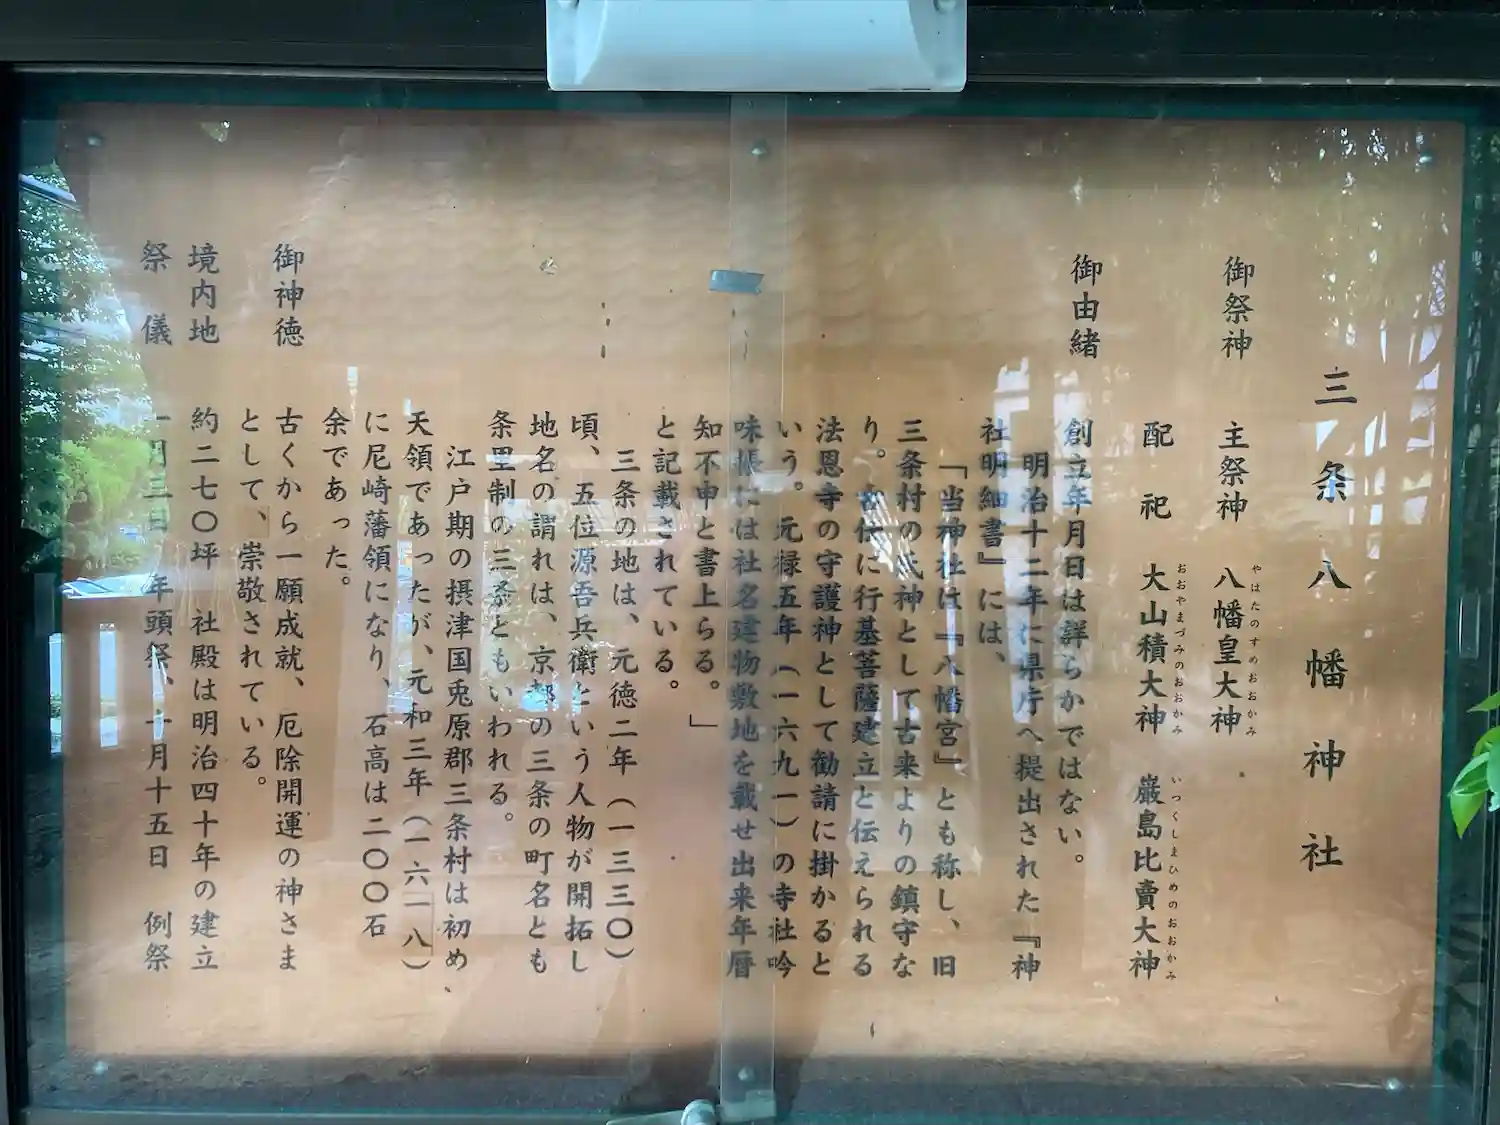 三条八幡神社
御祭神 主祭神 八幡皇大神
やはたのすめおおかみ
配祀 大山積大神 巌島比賣大神
おおやまづみのおおかみ いつくしまひめのおおかみ
御由緒
創立年月日は詳らかではない。
明治十二年に県庁へ提出された『神
社明細書』には、
「当神社は『八幡宮』とも称し、旧
三条村の氏神として古来よりの鎮守な
り。古伝に行基菩薩建立と伝えられる
法恩寺の守護神として勧請に掛かると
いう。元禄五年(一六九一)の寺社吟
味帳には社名建物敷地を載せ出来年暦
知不申と書上らる。」
と記載されている。
三条の地は、元徳二年(一三三〇)
頃、五位源吾兵衛という人物が開拓し
地名の謂れは、京都の三条の町名とも
条里制の三条ともいわれる。
江戸期の摂津国兎原郡三条村は初め、
天領であったが、元和三年(一六一八)
に尼崎藩領になり、石高は二〇〇石
余であった。
御神徳 古くから一願成就、厄除開運の神さま
として、崇敬されている。
境内地 約二七〇坪 社殿は明治四十年の建立
祭儀 一月三日 年頭祭、十月十五日 例祭